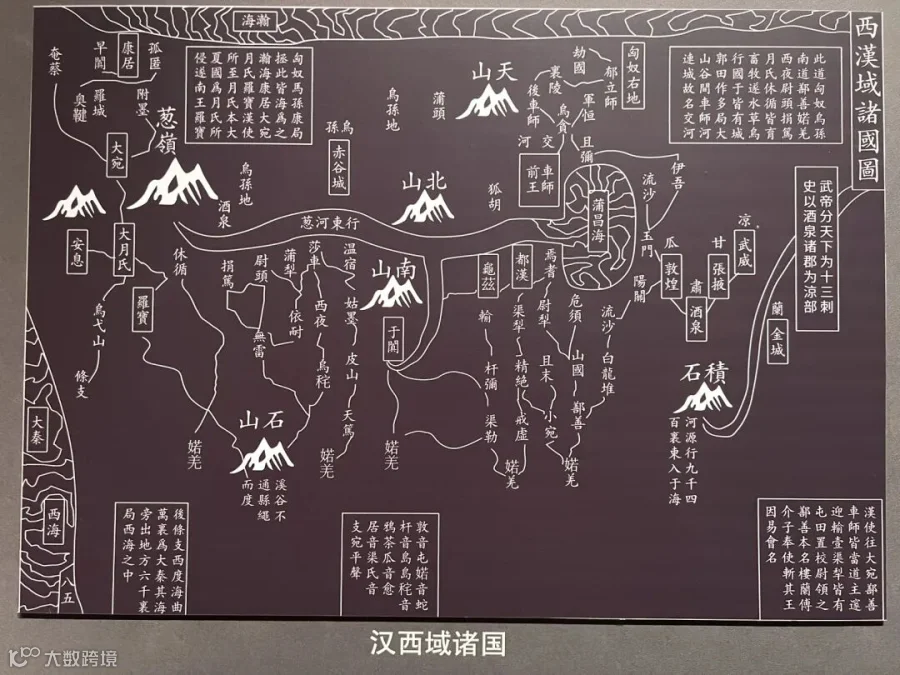 西漢域諸國圖
武帝分天下為十三刺
史以酒泉諸郡为涼部
此道匈奴烏孫
南道鄯善婼羌
西夜尉頭捐篤
月氏休循皆育
畜牧逐水草烏
行國于皆有城
郭田作多局大
山谷間車師河
連城故名交河
匈奴右地
劫國
郁立師
裏陵
後車師
烏貪
軍恒
且彌
天山
蒲頭
烏孫地
車師
前王
交
河
伊吾
流沙
玉門
蒲昌海
狐胡
北山
烏孫
赤谷城
瀚海
匈奴馬孫康局
接此皆海為之
瀚海康居大宛
月氏羅寶漢使
所至月氏本大
夏國爲月氏所
侵遂南王羅寶
孤匿
康居
早闐
奄蔡
附墨
羅城
奥鞬
葱嶺
大宛
烏孫地
酒泉
葱河東行
大月氏
安息
羅寶
烏弋山
條支
休循
捐篤
尉頭
蒲犁
莎車
温宿
無雷
依耐
西夜
烏秅
姑墨
皮山
天篤
南山
于闐
龜茲
都漢
焉耆
輪
渠犁
尉犁
危須
杆彌
精絕
且末
山國
渠勒
戒虛
小宛
鄯善
流沙
白龍堆
陽關
瓜
敦煌
肅
酒泉
甘
張掖
凉
武威
蘭
金城
積石
河源行九千四
百裏東入于海
婼羌
石山
溪谷不
通縣繩
而度
婼羌
婼羌
婼羌
婼羌
大秦
西海
五
後條支西度海曲
萬裏爲大秦其海
旁出地方六千裏
局西海之中
敦音屯婼音蛇
杆音烏烏秅音
鴉茶瓜音愈
居音渠氏音
支宛平聲
漢使往大宛鄯善
車師皆當道主邃
迎輸壹渠犁皆有
屯田置校尉領之
鄯善本名樓蘭傅
介子奉使斬其王
因易會名
汉西域诸国
大数跨境